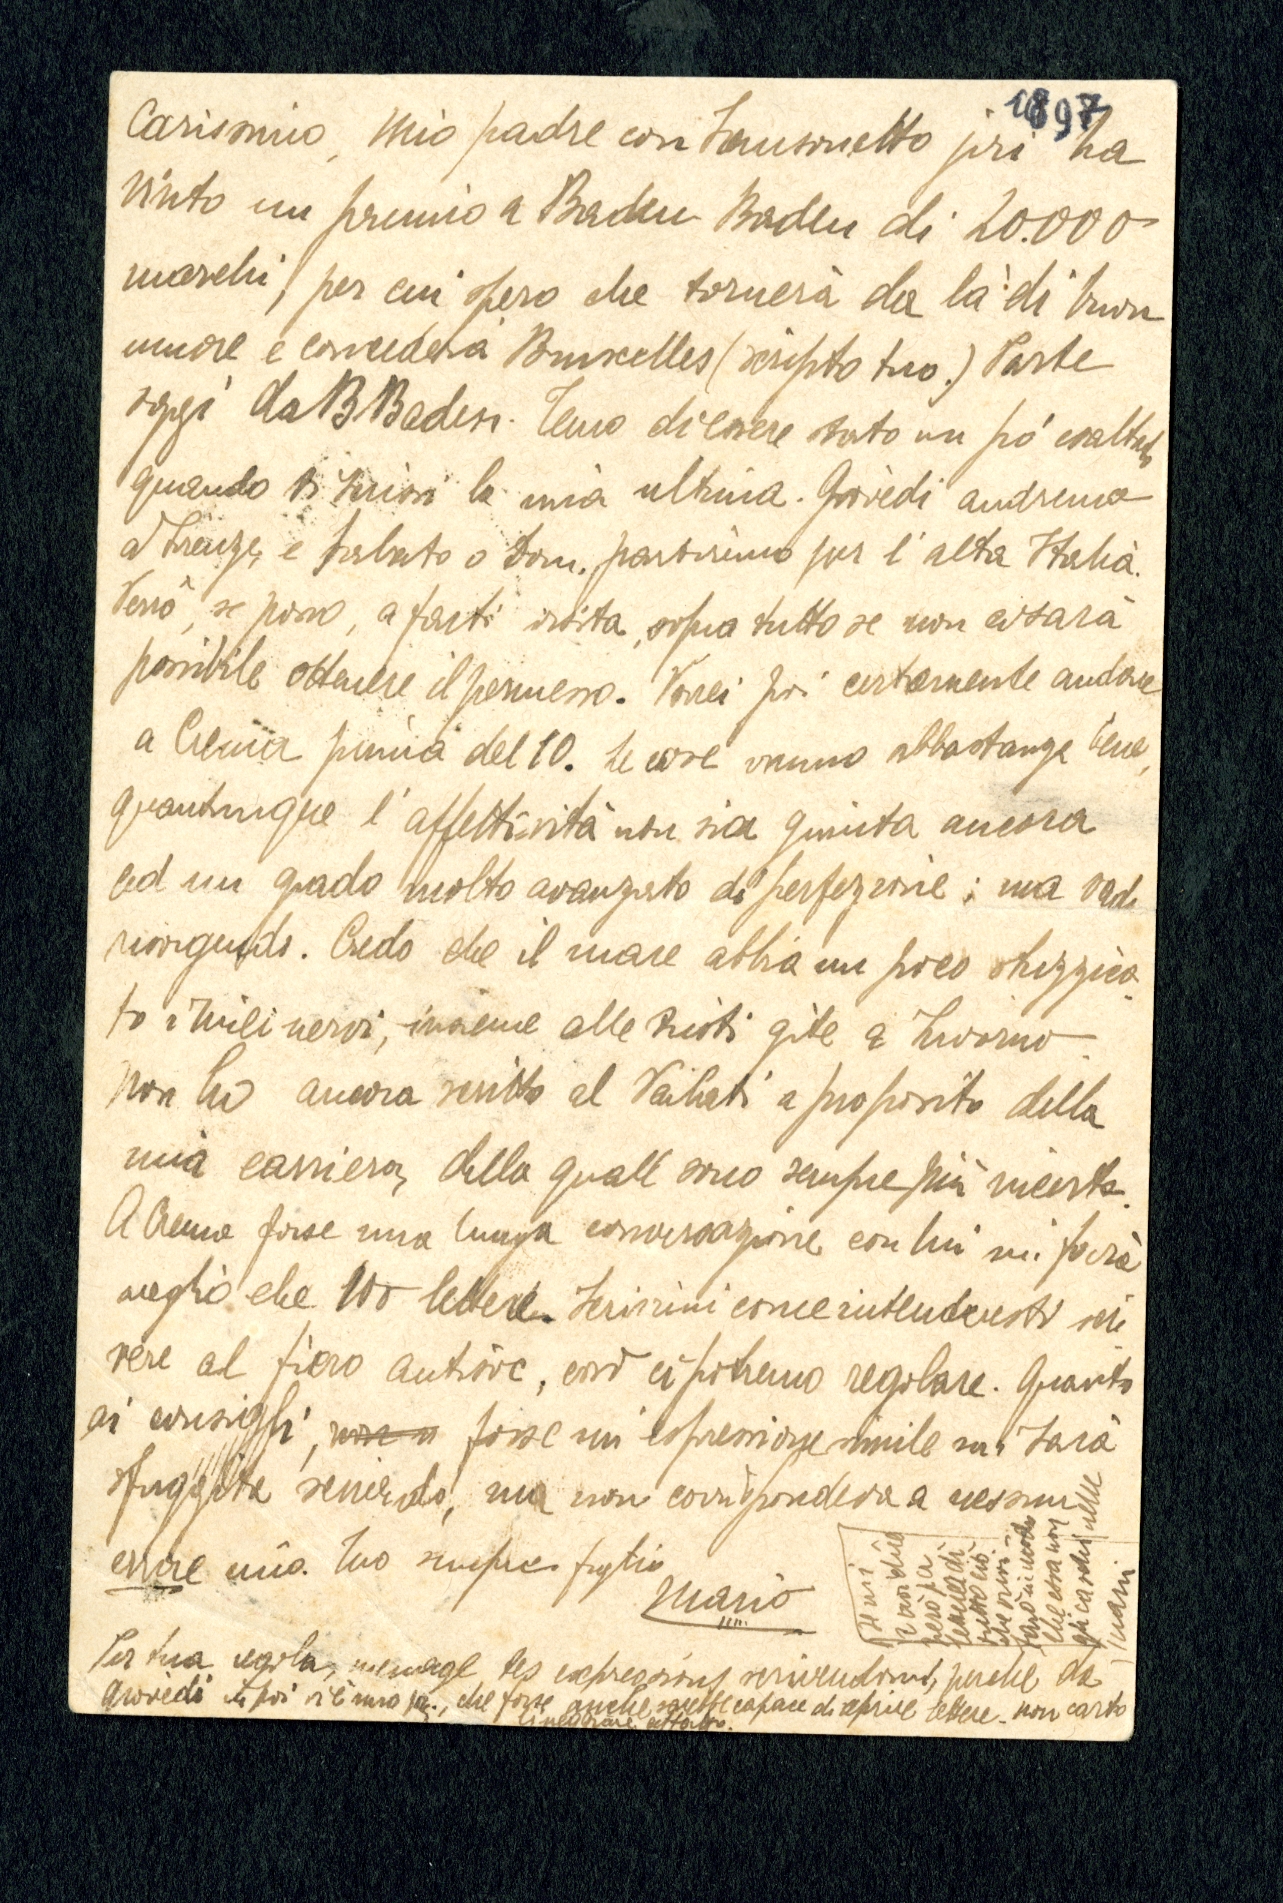 1897
Carissimo, Mio padre con Sansonetto jeri ha
vinto un premio a Baden Baden di 20.000
marchi, per cui spero che tornerà da là di buon
umore e concederà Bruxelles (scripto tuo.) Parte
oggi da B Baden. Temo di essere stato un pó esaltato
quando ti scrissi la mia ultima. Giovedi andremo
a Firenze, e sabato o Dom. partiremo per l'alta Italia.
Verrò, se posso, a farti visita, sopra tutto se non ci sarà
possibile ottenere il permesso. Vorrei poi certamente andare
a Crema prima del 10. Le cose vanno abbastanza bene,
quantunque l'affettività non sia giunta ancora
ad un grado molto avanzato di perfezione; ma vado
risorgendo. Credo che il mare abbia un poco stuzzica
to i miei nervi, insieme alle tristi gite a Livorno.
Non ho ancora scritto al Vailati a proposito della
mia carriera, della quale sono sempre più incerto.
A Crema forse una lunga conversazione con lui mi farà
meglio che 100 lettere. Scrivimi come intenderesti scri
vere al fiero, così ci potremo regolare. Quanto
ai consigli, forse un'espressione simile mi sarà
sfuggita scrivendo, ma non corrispondeva a nessun
errore mio. Tuo sempre figlio
Mario
Se mi
però per
lettera di
tutto ciò
che
in modo
che essa non
caschi nelle
mani
Per tua regola, menage tes expressions scrivendomi, perchè da
giovedi in poi vi è mio pa., che forse anche sarebbe capace di aprire lettere. non carto